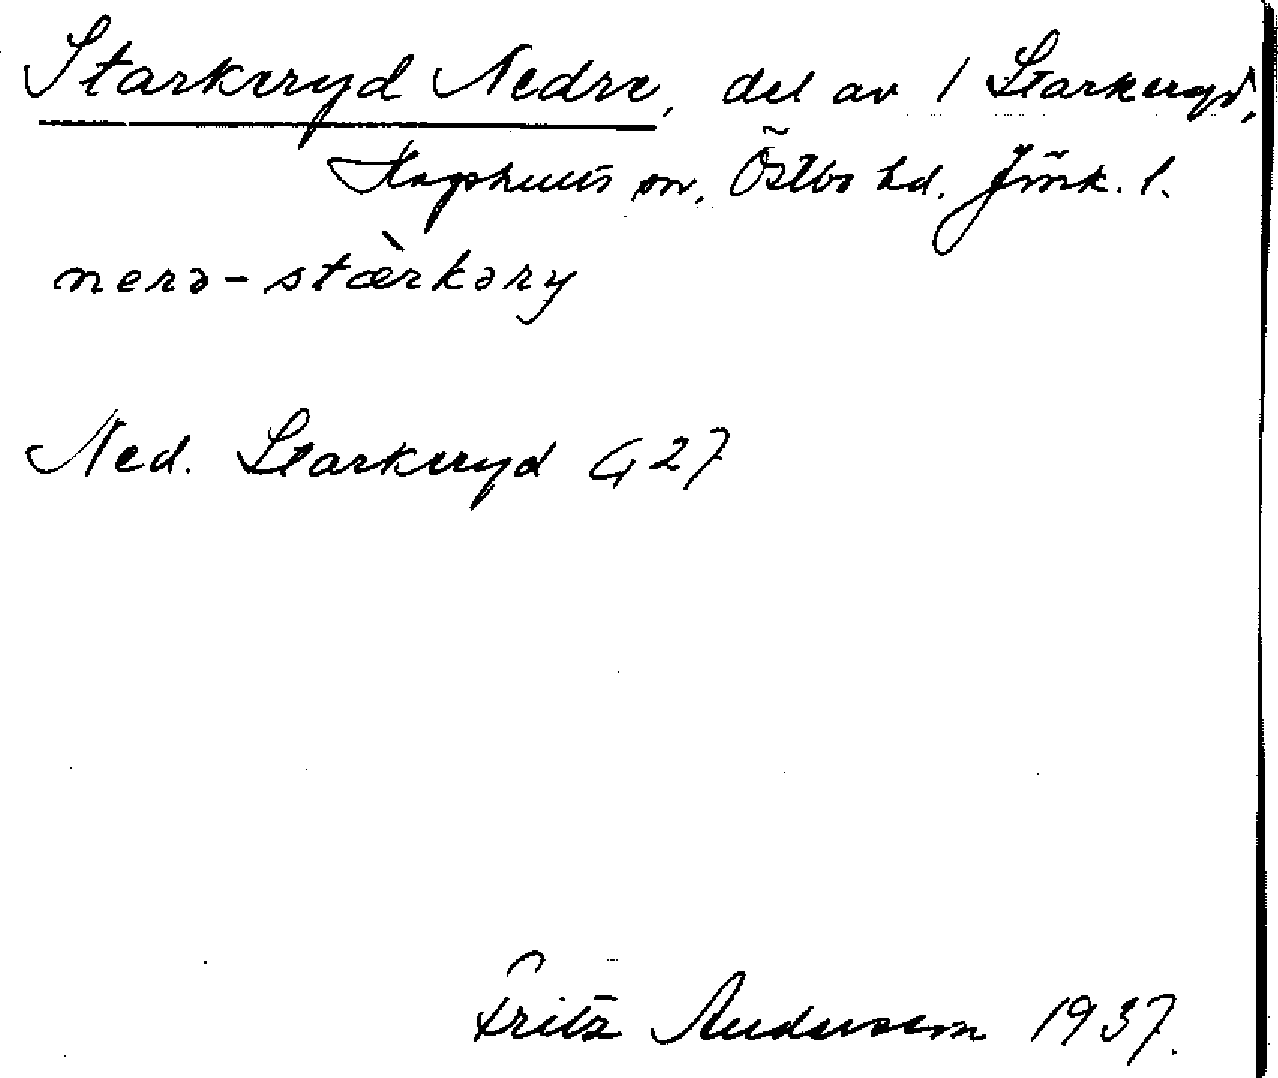 Starkeryd Nedre, del av 1 Starkeryd,
Kapshults sn, Östbo hd. Jönk. l.
nerə-stæ̀rkəry
Ned. Starkeryd G 27
Fritz Andersson 1937.